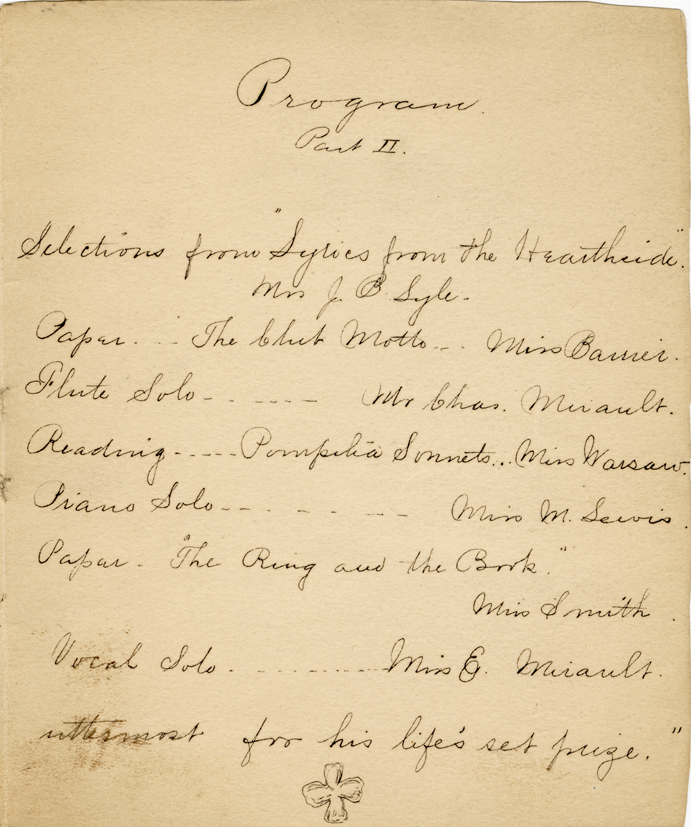 Program.
Part II.
Selections from "Lyrics from the Hearthside".
Mrs J. B. Syle.
Paper. The Club Motto Miss Barrier.
Flute Solo Mr Chas. Mirault.
Reading Pompilia Sonnets Miss Warsaw.
Piano Solo Miss M. Lewis.
Paper. "The Ring and the Book."
Miss Smith.
Vocal Solo. Miss E. Mirault.
uttermost for his life's set prize."